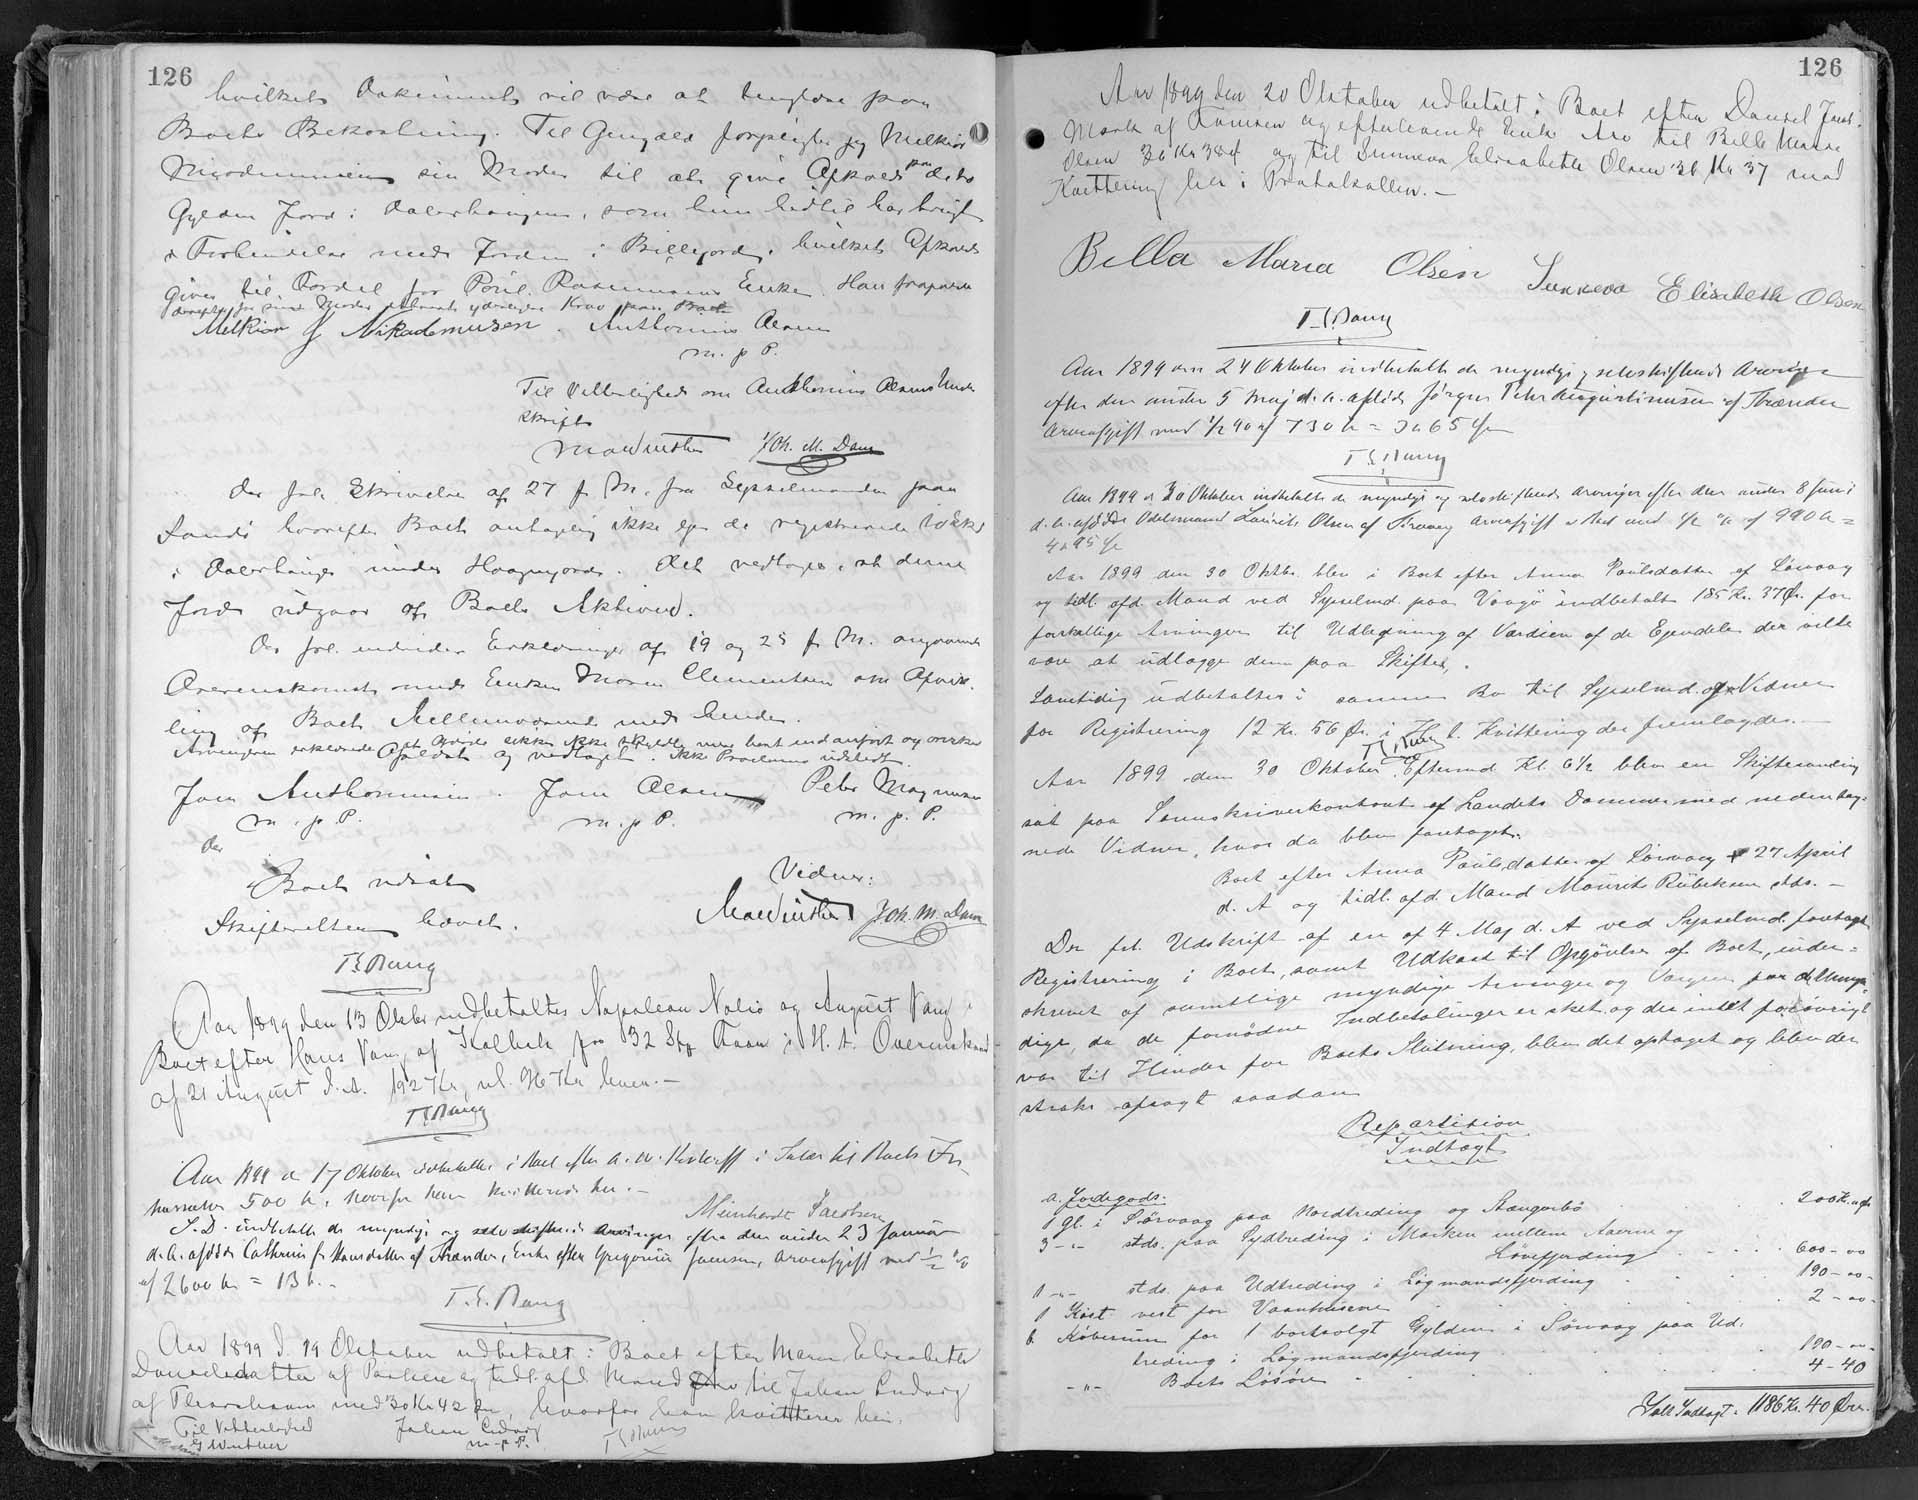 126
hvilket Dokument vil være at tinglæse paa
Boets Bekostning. Til Gengæld forpligter jeg Melkior
Nicodemusen sin Moder til at give Afkald paa dets
Gylden Jord i Dalerhaugen, som hun hidtil har brugt
i Forbindelse med Jorden i Billegjord, hvilket Afkald
gives til Fordel for Poul Rasmussens Enke. Han frafaldt
derefter for sin Moder ethvert yderligere Krav paa Boet
Melkior J Nikodemusen. Anthonius Olsen
m. p P.
Til Vitterlighed om Anthonius Olsens Under
skrift
Joh. M. Dam
Der fol. Skrivelse af 27 f. M. fra Sysselmanden paa
Sandø hvorefter Boet antagelig ikke ejer de registrerede
i Dalerhaugen under Haagengjord. Det vedtoges, at denne
Jord udgaar af Boets Aktiver.
Der fol. endvidere Erklæringer af 19 og 25 f. M. angaaende
Overenskomst med Enken Maren Clementsen om Afvik-
ling af Boets Mellemværende med hende.
Arvingerne erklærede at Afdøde sikkert ikke skyldte mere bort end anført og ønsker
og vedtaget. ikke Proclama udstedt.
Joen Anthonius. Joen Olsen Peter Magnusen
m. p P. m. p P. m. p. P.
Der
Boet udsat
Skifteretten hævet.
Vidner:
Joh. M. Dam
T.S. Bang
Aar 1899 den 13 Oktbr indbetaltes Napoleon Nolsø og August Vang i
Boet efter Hans Vang af Kolbek for 32 Stk Faar i H. t. Overenskomst
af 21 August d. A. 192 Kr,
T.S. Bang
Aar 1899 d 17 Oktober udbetaltes i Boet efter i Salær til Boets In-
kassator 500 kr, hvorfor han kvitterede her.-
Meinhardt Jacobsen
S. D. indbetalte de myndige og selvskiftende Arvinger efter den under 23 Januar
d. A. afdøde Cathrine f. Hansdatter af Strænder, Enke efter Gregorius Joensen, Arveafgift med ½ %
af 2600 kr = 13 k.-
T. S. Bang
Aar 1899 d. 19 Oktober udbetalt i Boet efter Maren Elisabeth
Danielsdatter af og tidl. afd. Mand til Johan Ludvig
af med 30 Kr 42 Øre, hvorfor han kvitterer her.
Til Vitterlighed Johan Ludvig
Winther m. p. P. T S Bang
126
Aar 1899 den 20 Oktober udbetalt i Boet efter Daniel
af og efterlevende Enke Arv til Bella Maria
Olsen 36 Kr 38 Ø og til Sunneva Elisabeth Olsen 36 Kr 37 mod
Kvittering her i Protokollen.-
Bella Maria Olsen Sunneva Elisabeth Olsen
T. S. Bang
Aar 1899 den 24 Oktober indbetalte de myndige selvskiftende Arvinger
efter den under 5 Maj d. A. afdøde Jørgen Peter Augustinusen af Strænder
Arveafgift med ½ % af 730 k = 3 k 65 Øre
T S Bang
Aar 1899 d 30 Oktober indbetalte de myndige og selvskiftende Arvinger efter den under 8 Juni
d. A. afdøde Odelsmand Laurits Olsen af Arveafgift med ½ % af 990 k =
4 k 95 Øre
Aar 1899 den 30 Oktbr. blev i Boet efter Anna Poulsdatter af Sørvaag
og tidl. afd. Mand ved Sysselmd. paa Vaagø indbetalt 185 Kr. 37 Ør. for
forskellige Arvinger til Udligning af Værdien af de Ejendele der ville
være at udlægge dem paa Skiftet,.
Samtidig udbetaltes i samme Bo til Sysselmd. og Vidner
for Registrering 12 Kr. 56 Ør. i H. t. Kvittering der fremlagdes.-
T S Bang
Aar 1899 den 30 Oktober Eftermd Kl. 6½ blev en Skiftesamling
sat paa Sorenskriverkontoret af Landets Dommer med nedenteg-
nede Vidner, hvor da blev foretaget:
Boet efter Anna Poulsdatter af Sørvaag † 27 April
d. A og tidl. afd. Mand Mourits stds.-
Der fol. Udskrift af en af 4 Maj d. A ved Sysselmd. foretaget
Registrering i Boet, samt Udkast til Opgørelse af Boet, under-
skrevet af samtlige myndige Arvinger og Værgen for de Umyn-
dige, da de fornødne Indbetalinger er sket, og der intet forøvrigt
var til Hinder for Boets Slutning, blev det optaget og blev der
straks afsagt saadan
Repartition
Indtægt
a. Jordegods.
1 gl. i Sørvaag paa Nordtreding og Stangarbø . . 200 Kr.
3 -"- stds. paa Sydtreding i Marken mellem Aaerne og
Løvefjerding . . . . 600-00
1 -"- stds. paa Udtreding i Løgmandsfjerding . . . 190-00-
1 Køst vest for Vaanhusene . . . 2-00-
b. Købesum for 1 bortsolgt Gylden i Sørvaag paa Ud.
treding i Løgmandsfjerding . . . 190-00-
-"- Boets Løsøre . . . 4-40
Indtægt: 1186 Kr. 40 Øre.